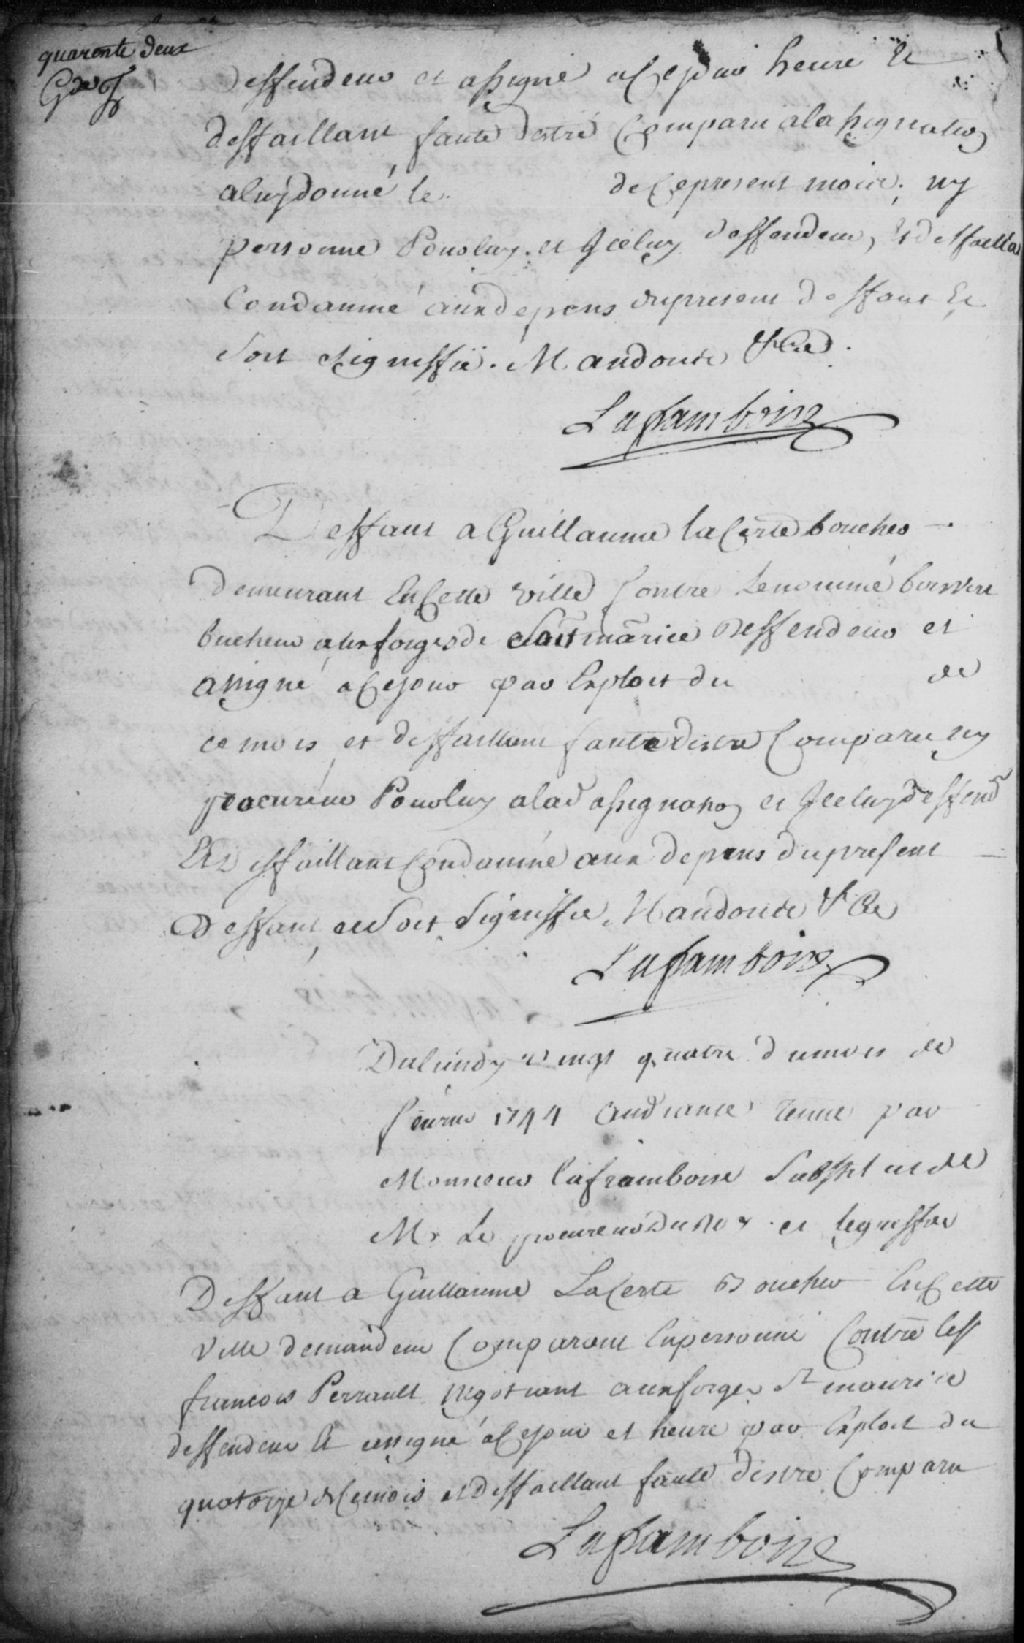 quarente deux
deffendeur et assigné a ce jour heure Et
deffaillant faute destre Comparu alassignation
aluy donné le de ce present mois, ny
personne Pour luy. et Iceluy deffendeur, Et deffaillant
Condamné aux depens du present deffaut Et
soit signiffié. Mandons &ca.
Laframboise
Deffaut a Guillaume laCerte boucher
demeurant En Cette ville Contre Lenommé boisvert
bucheur aux forges de Saint maurice deffendeur et
assigné a Ce jour par Exploit du de
ce mois et deffaillant faute destre Comparu ny
procureur Pour luy alad assignation et Iceluy deffendr
Et deffaillant Condamné aux depens du present
deffaut, et Soit Signiffié Mandons &ca
Laframboise
Du lundy vingt quatre du mois de
fevrier 1744 audiance tenue par
Monsieur laframboise Substitut de
Mr Le procureur du Roy et legreffier
Deffaut a Guillaume LaCerte Boucher En Cette
ville demandeur Comparant En personne Contre le sr
francois Perrault negotiant aux forges st maurice
deffendeur Et assigné a Ce jour et heure par Exploit du
quatorze de Cemois et deffaillant faute destre Comparu
Laframboise